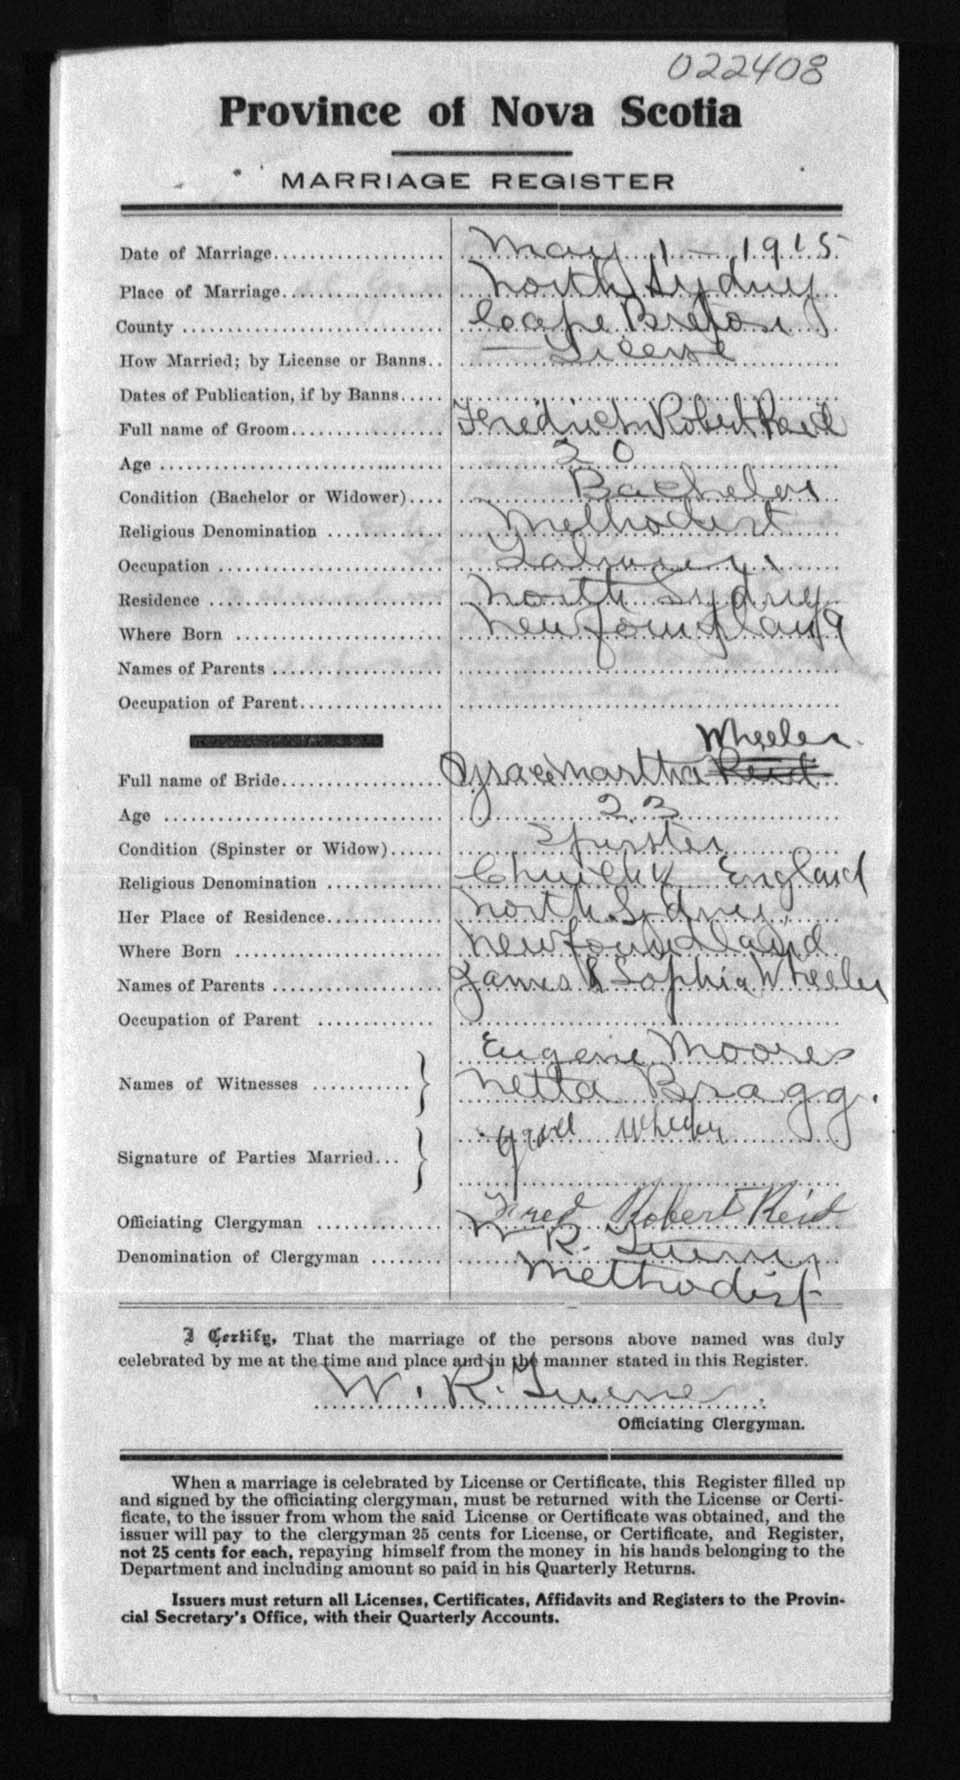 022408
Province of Nova Scotia
MARRIAGE REGISTER
Date of Marriage May 1 - 1915
Place of Marriage North Sydney
County Cape Breton
How Married; by License or Banns License
Dates of Publication, if by Banns
Full name of Groom Fredrick Robert Reid
Age 20
Condition (Bachelor or Widower) Bachelor
Religious Denomination Methodist
Occupation
Residence North Sydney
Where Born Newfoundland
Names of Parents
Occupation of Parent
Wheeler
Full name of Bride Grace Martha Reid
Age 23
Condition (Spinster or Widow) Spinster
Religious Denomination Church England
Her Place of Residence North Sydney
Where Born Newfoundland
Names of Parents James & Sophia Wheeler
Occupation of Parent
Eugene Moores
Names of Witnesses Netta Bragg.
Grace Wheeler
Signature of Parties Married
Fred Robert Reid
Officiating Clergyman W. R.
Denomination of Clergyman Methodist
I Certify, That the marriage of the persons above named was duly
celebrated by me at the time and place and in the manner stated in this Register.
W. R.
Officiating Clergyman.
When a marriage is celebrated by License or Certificate, this Register filled up
and signed by the officiating clergyman, must be returned with the License or Certi-
ficate, to the issuer from whom the said License or Certificate was obtained, and the
issuer will pay to the clergyman 25 cents for License, or Certificate, and Register,
not 25 cents for each, repaying himself from the money in his hands belonging to the
Department and including amount so paid in his Quarterly Returns.
Issuers must return all Licenses, Certificates, Affidavits and Registers to the Provin-
cial Secretary's Office, with their Quarterly Accounts.